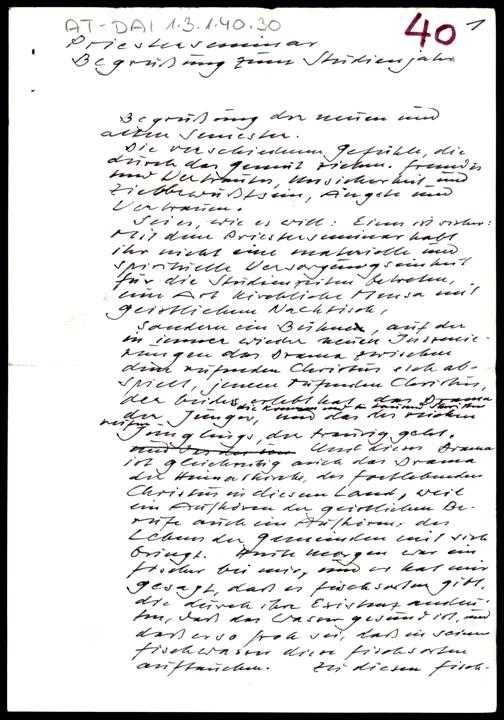 AT-DAI 1.3.1.40.30
40
1
Priesterseminar
Begrüßung zum Studienjahr
Begrüßung der neuen und
alten Semester.
Die verschiedenen Gefühle, die
durch das Gemüt ziehen. Fremdes
und Vertrautes, Unsicherheit und
Zielbewußtsein, Ängste und
Vertrauen.
Sei es, wie es will: Eines ist sicher:
Mit dem Priesterseminar habt
ihr nicht eine materielle und
spirituelle Versorgungseinheit
für die Studienzeiten betreten,
eine Art kirchliche Mensa mit
geistlichem Nachtisch,
sondern eine Bühne, auf der
in immer wieder neuen Inszenie-
rungen das Drama zwischen
dem rufenden Christus sich ab-
spielt, jenem rufenden Christus,
der beides erlebt hat, das Drama
der Jünger, die kommen und und das des reichen
Jünglings, der traurig geht.
und das Und dieses Drama
ist gleichzeitig auch das Drama
der Heimatkirche, des fortlebenden
Christus in diesem Land, weil
ein Aufhören der geistlichen Be-
rufe auch ein Aufhören des
Lebens der Gemeinden mit sich
bringt. Heute morgen war ein
Fischer bei mir, und er hat mir
gesagt, daß es Fischsorten gibt,
die durch ihre Existenz andeu-
ten, daß das Wasser gesund ist, und
daß er so froh sei, daß in seinem
Fischwasser diese Fischsorten
auftauchen. Zu diesen Fisch-